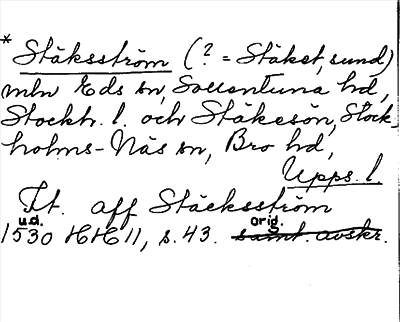 * Stäksström (? = Stäket, sund)
mln Eds sn, Sollentuna hd,
Stockh. l. och Stäksön, Stock-
holms-Näs sn, Bro hd,
Upps. l.
It. aff Stäcksström
u.d. orig.
1530 HH 11, s. 43. samt. avskr.